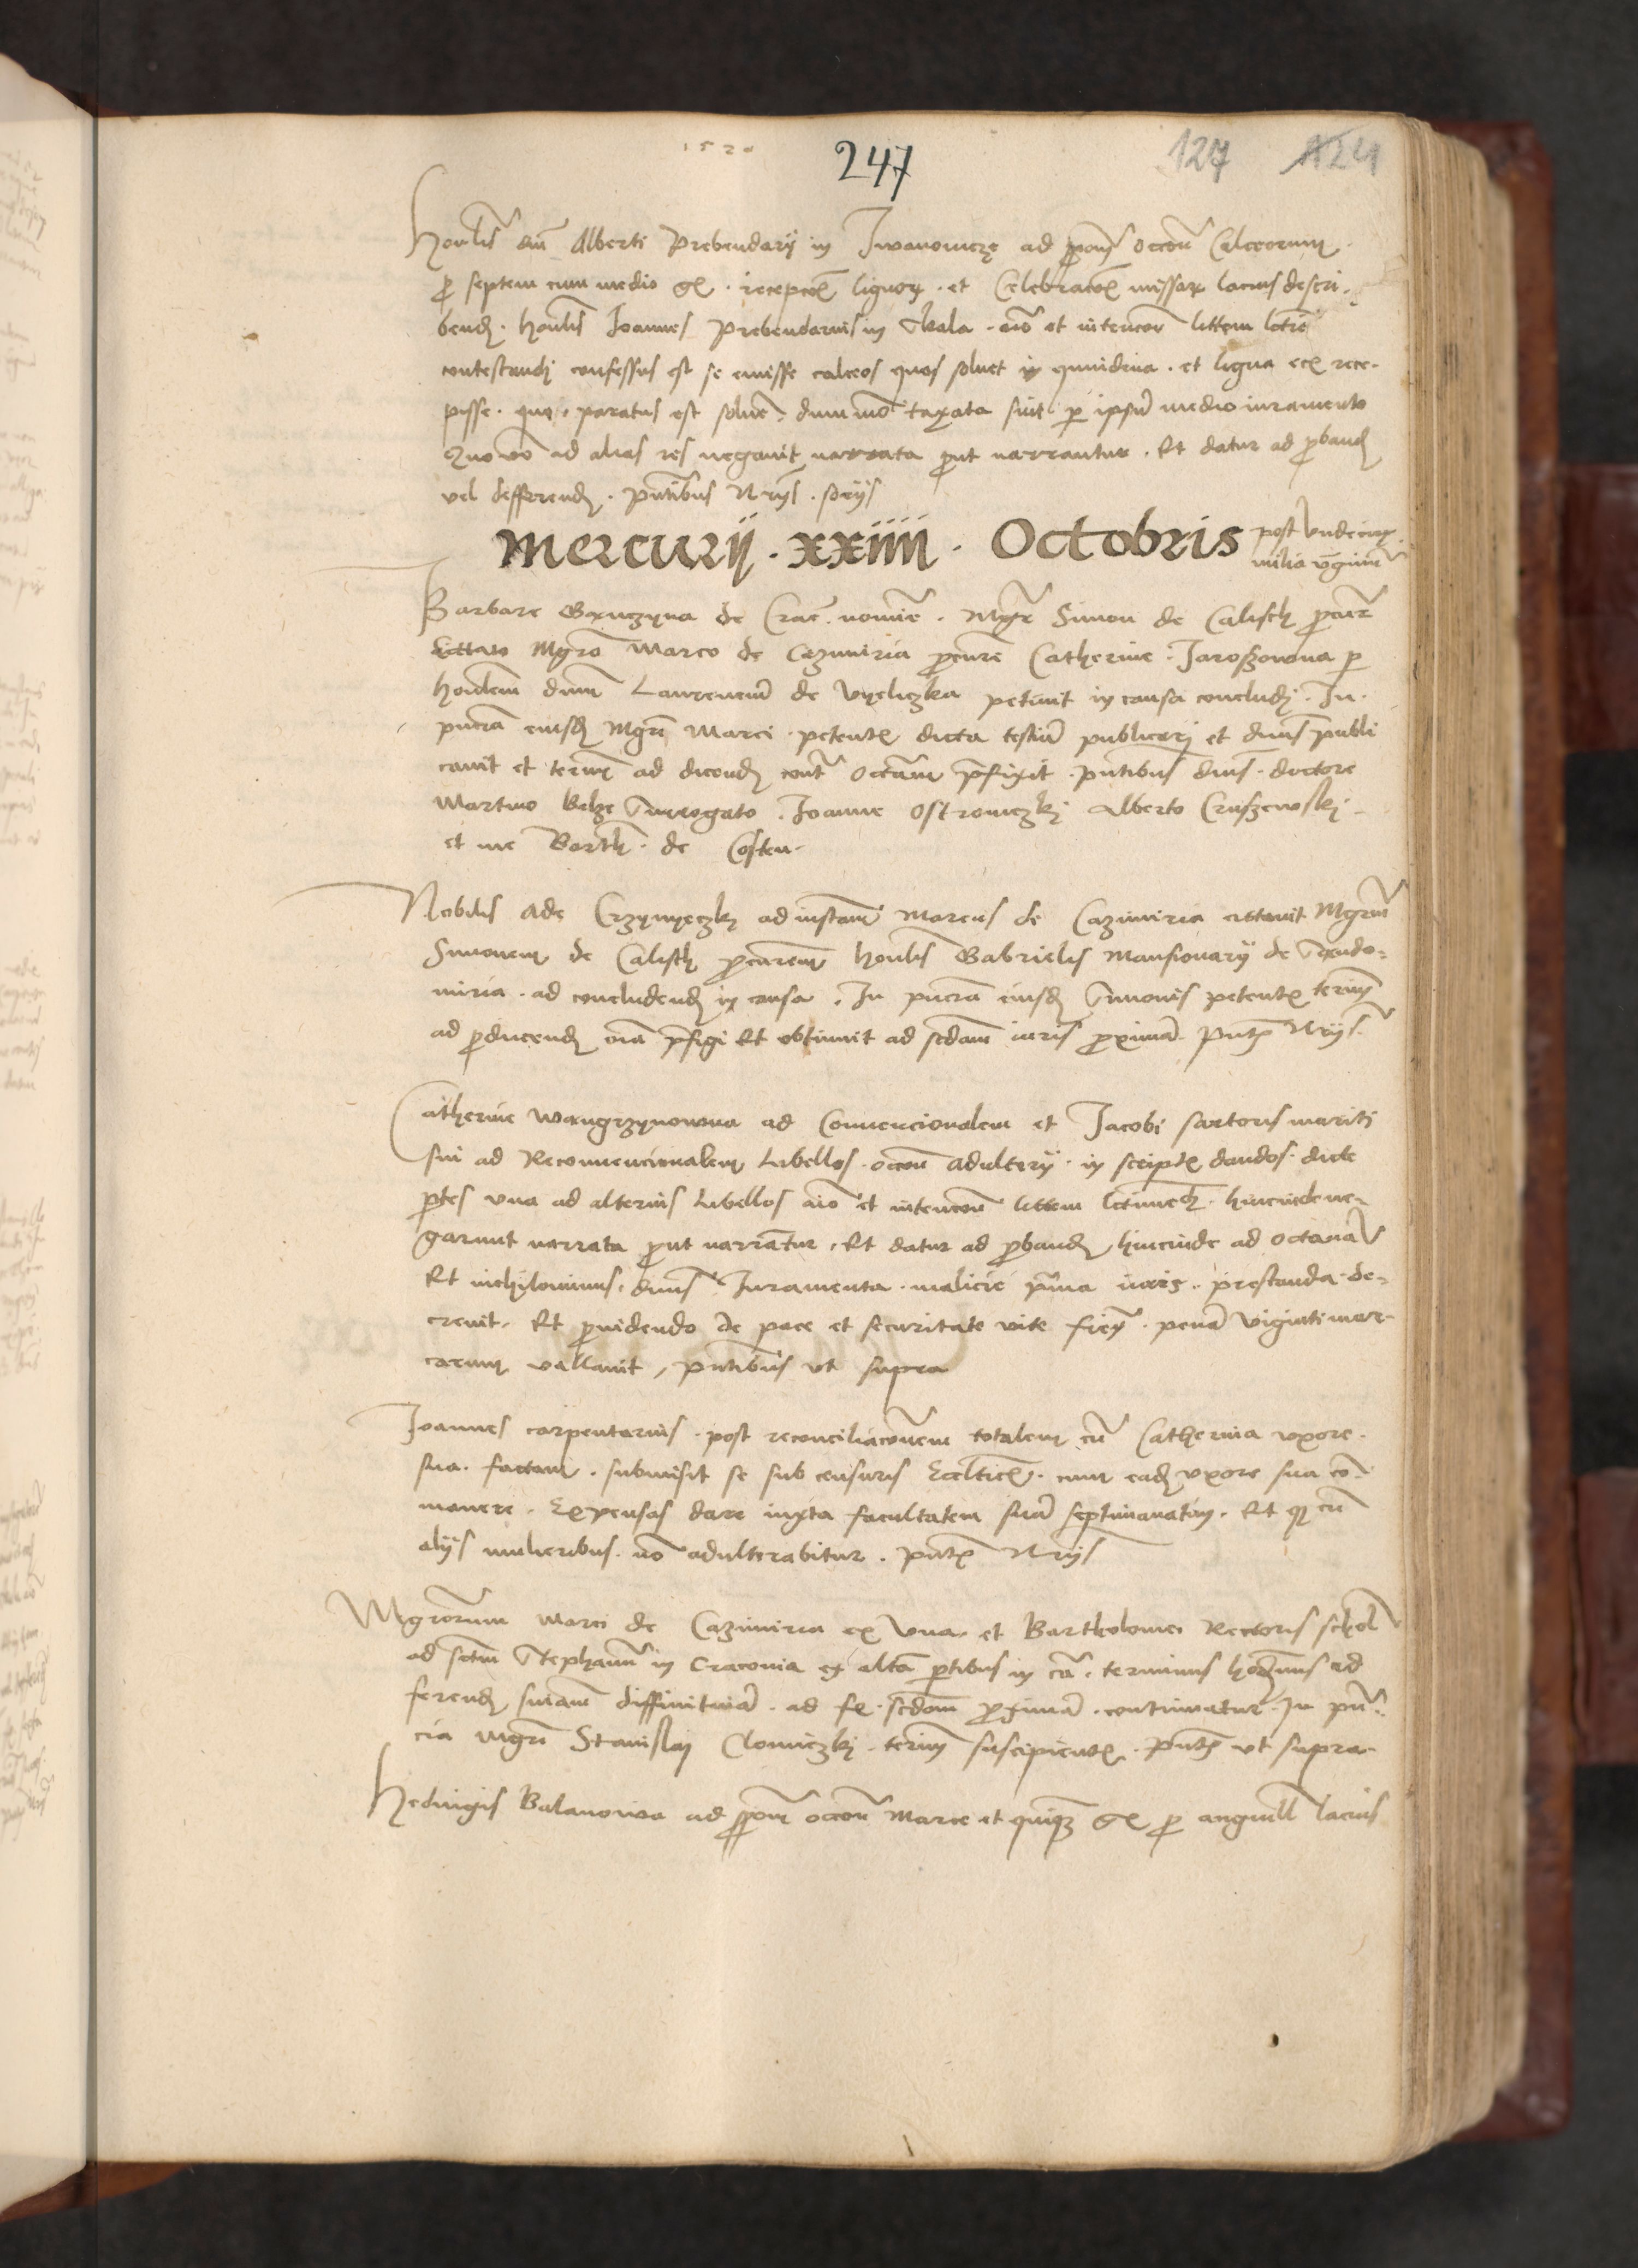 1520
247
127 124
Honlis dni Alberti Prebendarij in Iwanowicze ad pposm occone Calceorum
p septem cum medio gr. recepcois lignor. et Celebracois missar lacius descri-
bend. honlis Joannes Prebendarius in Skala. aio et intencone littem ltime
contestandi confessus est se emisse calceos quos soluet in quindena. et ligna ecr rece-
pisse. que paratus est soluere. dummo taxata sint p ipsum medio iuramento
Quo vo ad alias res negauit narrata put narrantur. Et datur ad pband
vel defferend. pntibus Nrijs. sorijs
Mercurij. xxiiii. Octobris post Undecim
milia virginum
Barbare de Crac. nomine. Mgr Simon de Calisch pcur
cittato Mgro Marco de Cazimiria pcure Catherine. Jaroszowna p
hondem dnum Laurencium de Vyeliczka petiuit in causa concludi. In
pncia eiusd Mgri Marci. petente dicta testium publicari et dnus publi
cauit et termin ad dicend cont Octauam pfixit. pntibus dnis. doctore
Martino Belze Surrogato. Joanne Ostrowiczki Alberto Cruszewski.
et me Barth. de Costen.
Nobilis Ade Crzynyeczky ad instanc Marcus de Cazimiria cittauit Mgrum
Simonem de Calisch pcurem honlis Gabrielis Mansionarij de Sendo-
miria. ad concludend in causa. In pncia eiusd Simonis petente termin
ad pducend oia pfigi Et obtinuit ad scdam iuris pximam. Pntibus Nrijs
Catherine Wangrzynowna ad Conuencionalem et Jacobi sartoris mariti
sui ad Reconuencionalem Libellos. occone adulterij. in scriptis dandos. dicte
ptes vna ad alterius Libellos aio et intencone littem. hincinde ne-
garunt narrata put narrantur. Et datur ad pband hincinde ad octauam
Et nichilominus. dnus Juramenta. malicie pma iuris. prestanda de-
creuit. Et puidendo de pace et securitate vite. pena viginti mar-
carum vallauit, pntibus vt supra
Joannes carpentarius. post reconciliacionem totalem cum Catherina vxore.
sua. factam. submisit se sub censuris Eccleticis. cum ead vxore sua co-
manere. Expensas dare iuxta facultatem suam septimanatim. Et q cum
alijs mulieribus. no adulterabitur. pntibus Nrijs
Mgrorum Marci de Cazimiria ex Vna. et Bartholomei Rectoris schol
ad sctum Stephanum in Cracouia ex altera ptibus in ca. terminus hodiernus ad
ferend sniam diffinitiuam. ad fe. scdam pximam. continuatur. In pn-
cia Mgri Stanislaj Clomiczki. termin suscipientis. Pntibus vt supra.
Hedwigis Balanowa ad pposm occone Marce et quinqz gr p anguill lacius